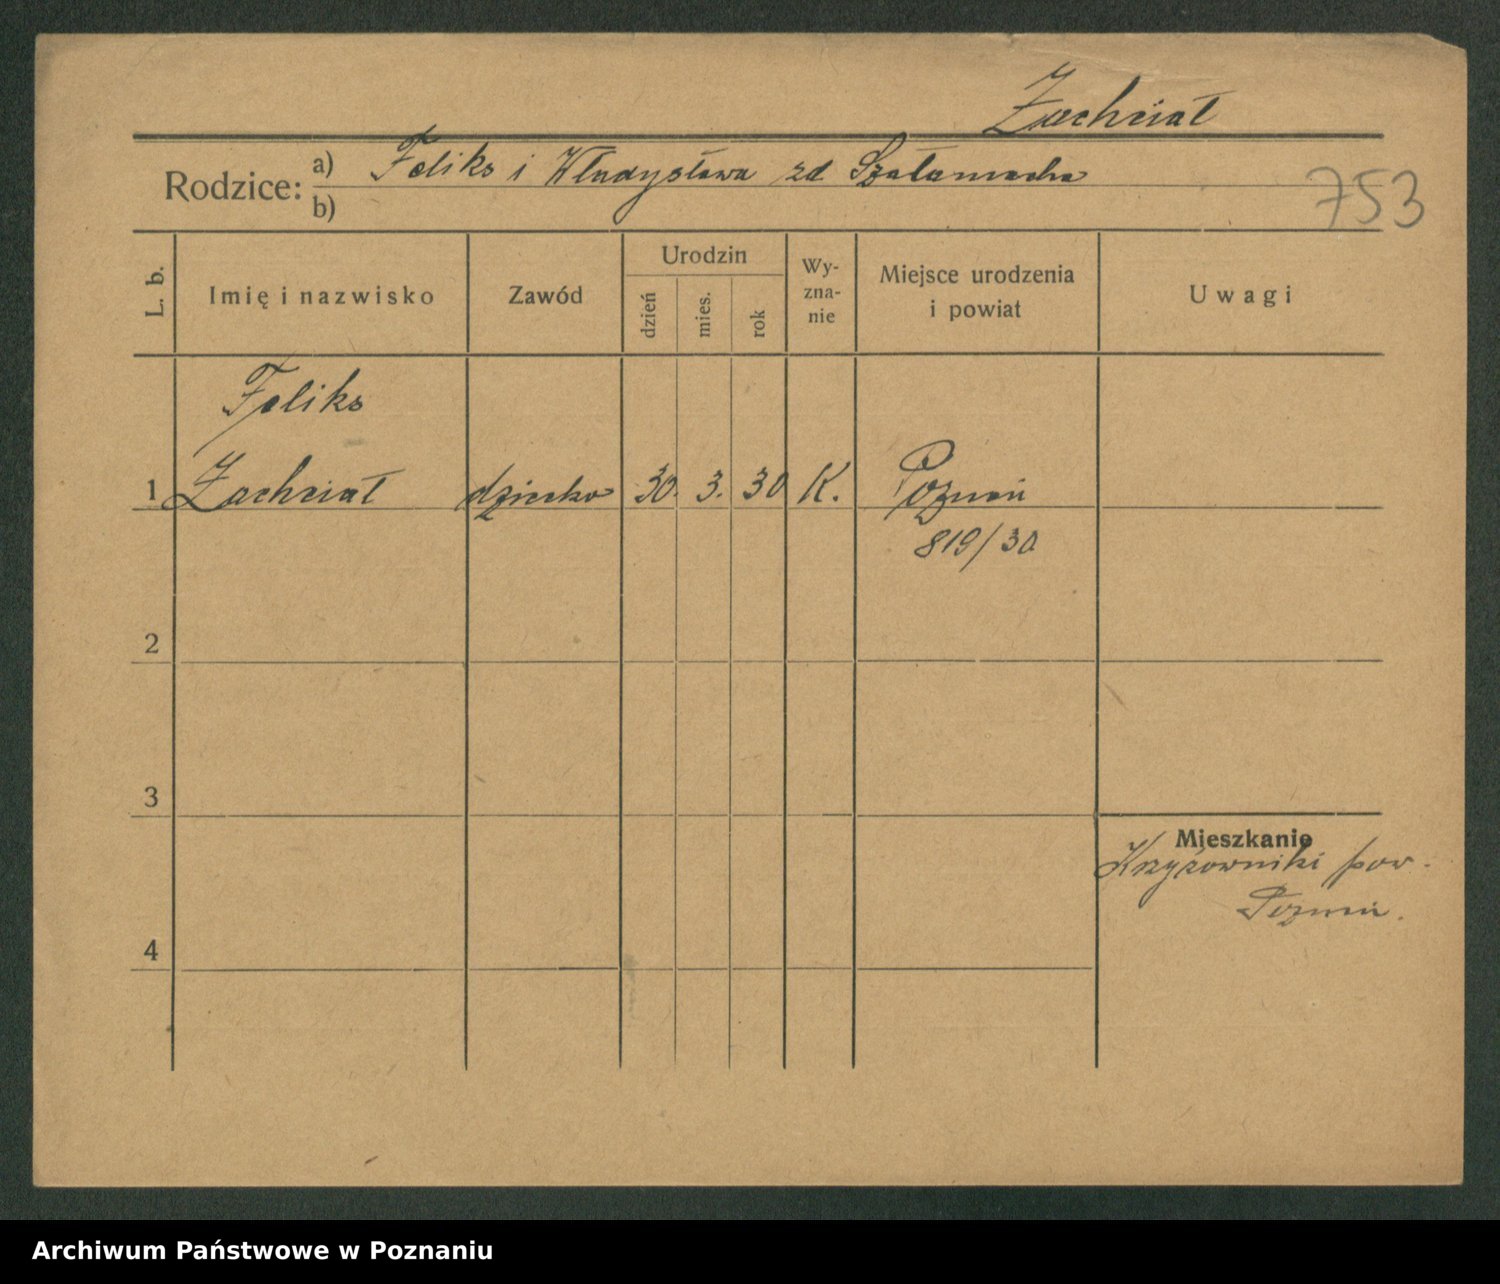 Zachciał
Rodzice: a) Feliks i Władysława zd. Szałamacha
b)
753
L. b.
Imię i nazwisko
Zawód
Urodzin
dzień
mies.
rok
Wy-
zna-
nie
Miejsce urodzenia
i powiat
Uwagi
Feliks
1 Zachciał dziecko 30. 3. 30 K. Poznań
819/30
2
3
Mieszkanie
Krzyżowniki pow.
Poznań.
4
Archiwum Państwowe w Poznaniu